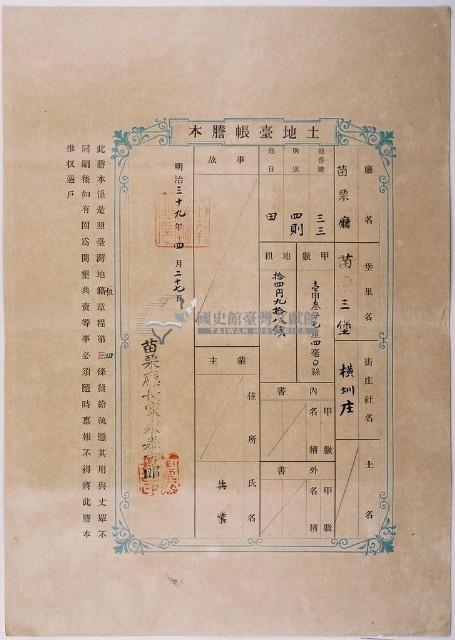 土地臺帳謄本
廳名
苗栗廳
堡里名
苗 三堡
街庄社名
橫圳庄
土名
地番號
三三
則別
四則
地目
田
甲數
壹甲叁分 厘四毫〇絲
地租
拾四円九拾八錢
內書
甲數
名稱
外書
甲數
名稱
事故
業主
住所
氏名
共業
明治三十九年四月二十七日
苗栗廳長家永泰吉郎
此謄本係是照臺灣地租章程第四條發給執 其用與丈單不
同嗣後如有因為開墾典賣等事必須隨時稟報不得將此謄本
推収過戶
國史館臺灣文獻館
TAIWAN HISTORICA